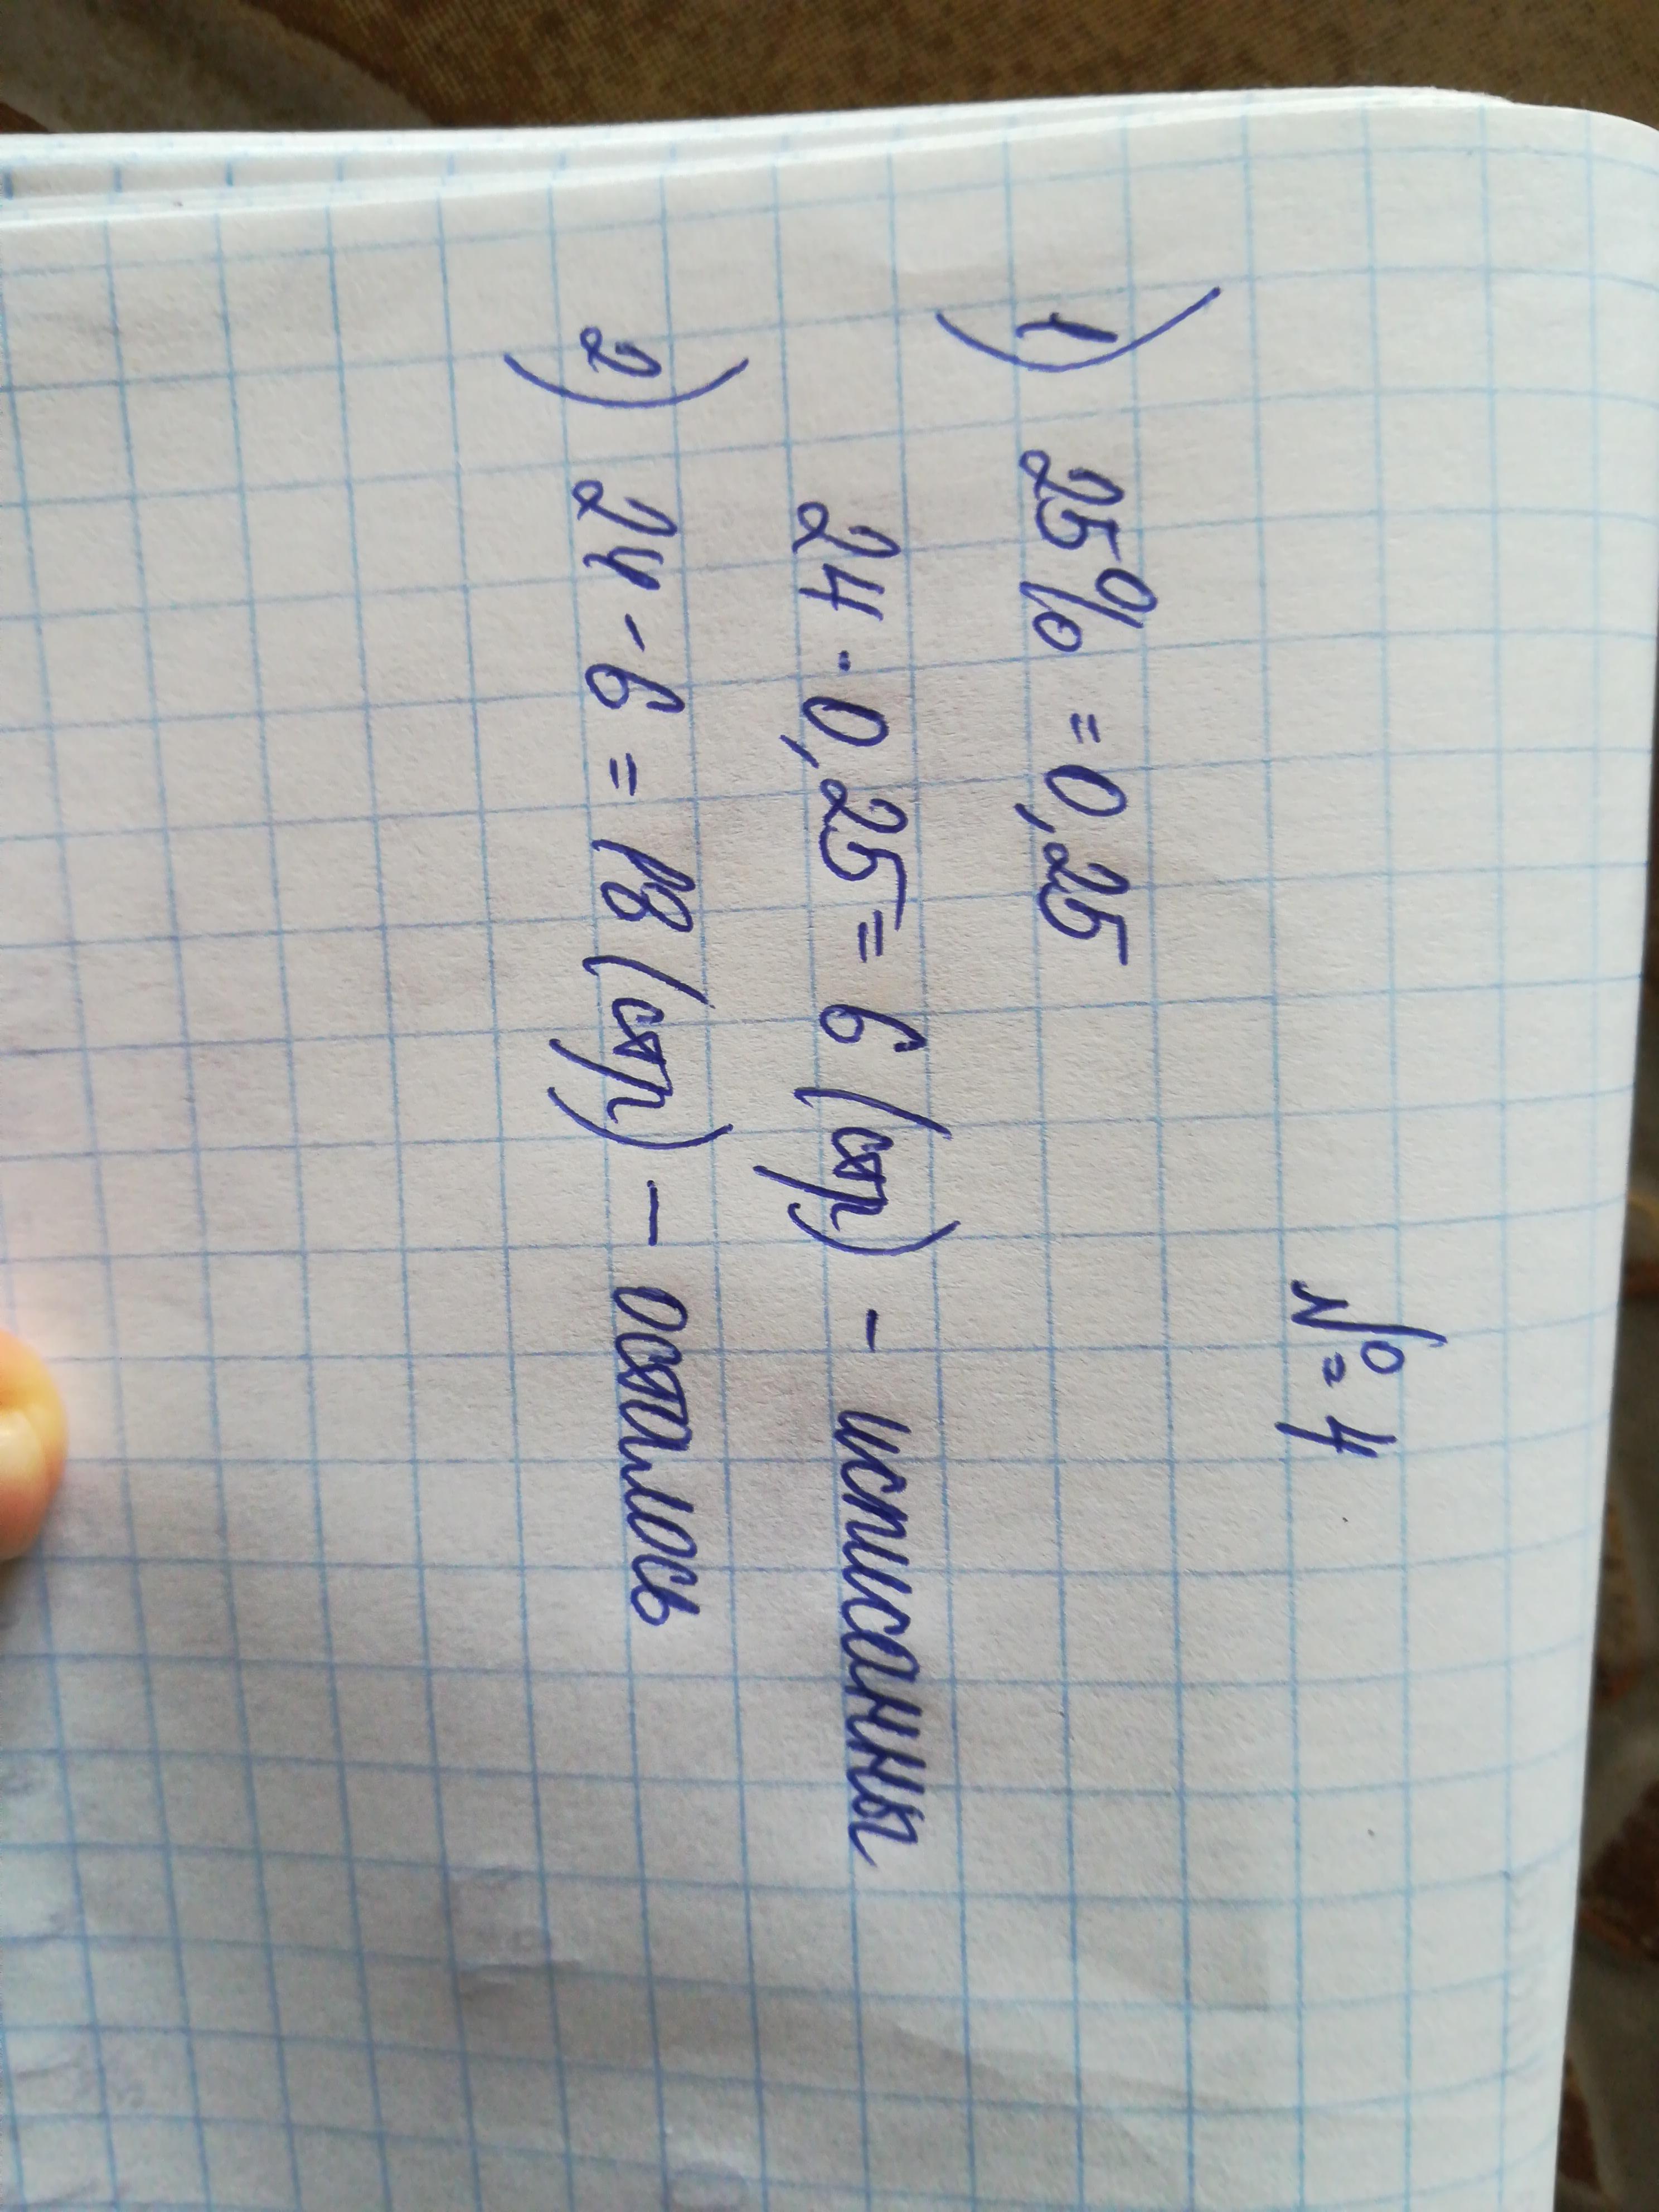 № 4
1) 25% = 0,25
24 · 0,25 = 6 (стр) - исписанны
2) 24 - 6 = 18 (стр) - осталось